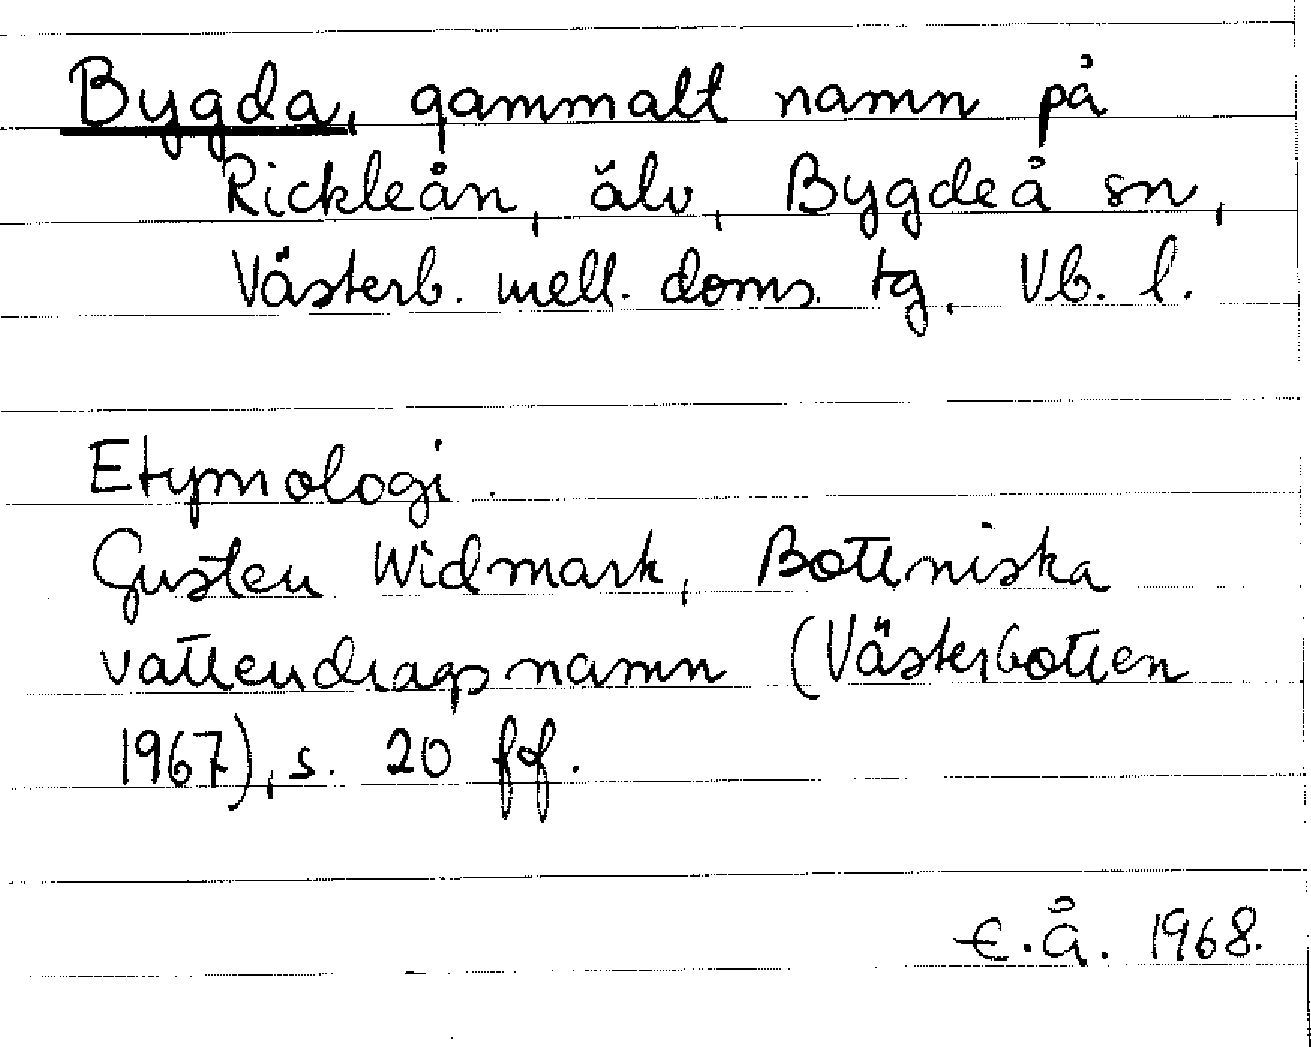 Bygda, gammalt namn på
Rickleån, älv, Bygdeå sn,
Västerb. mell. doms. tg, Vb. l.
Etymologi.
Gusten Widmark, Bottniska
vattendragsnamn (Västerbotten
1967), s. 20 ff.
E.Å. 1968.